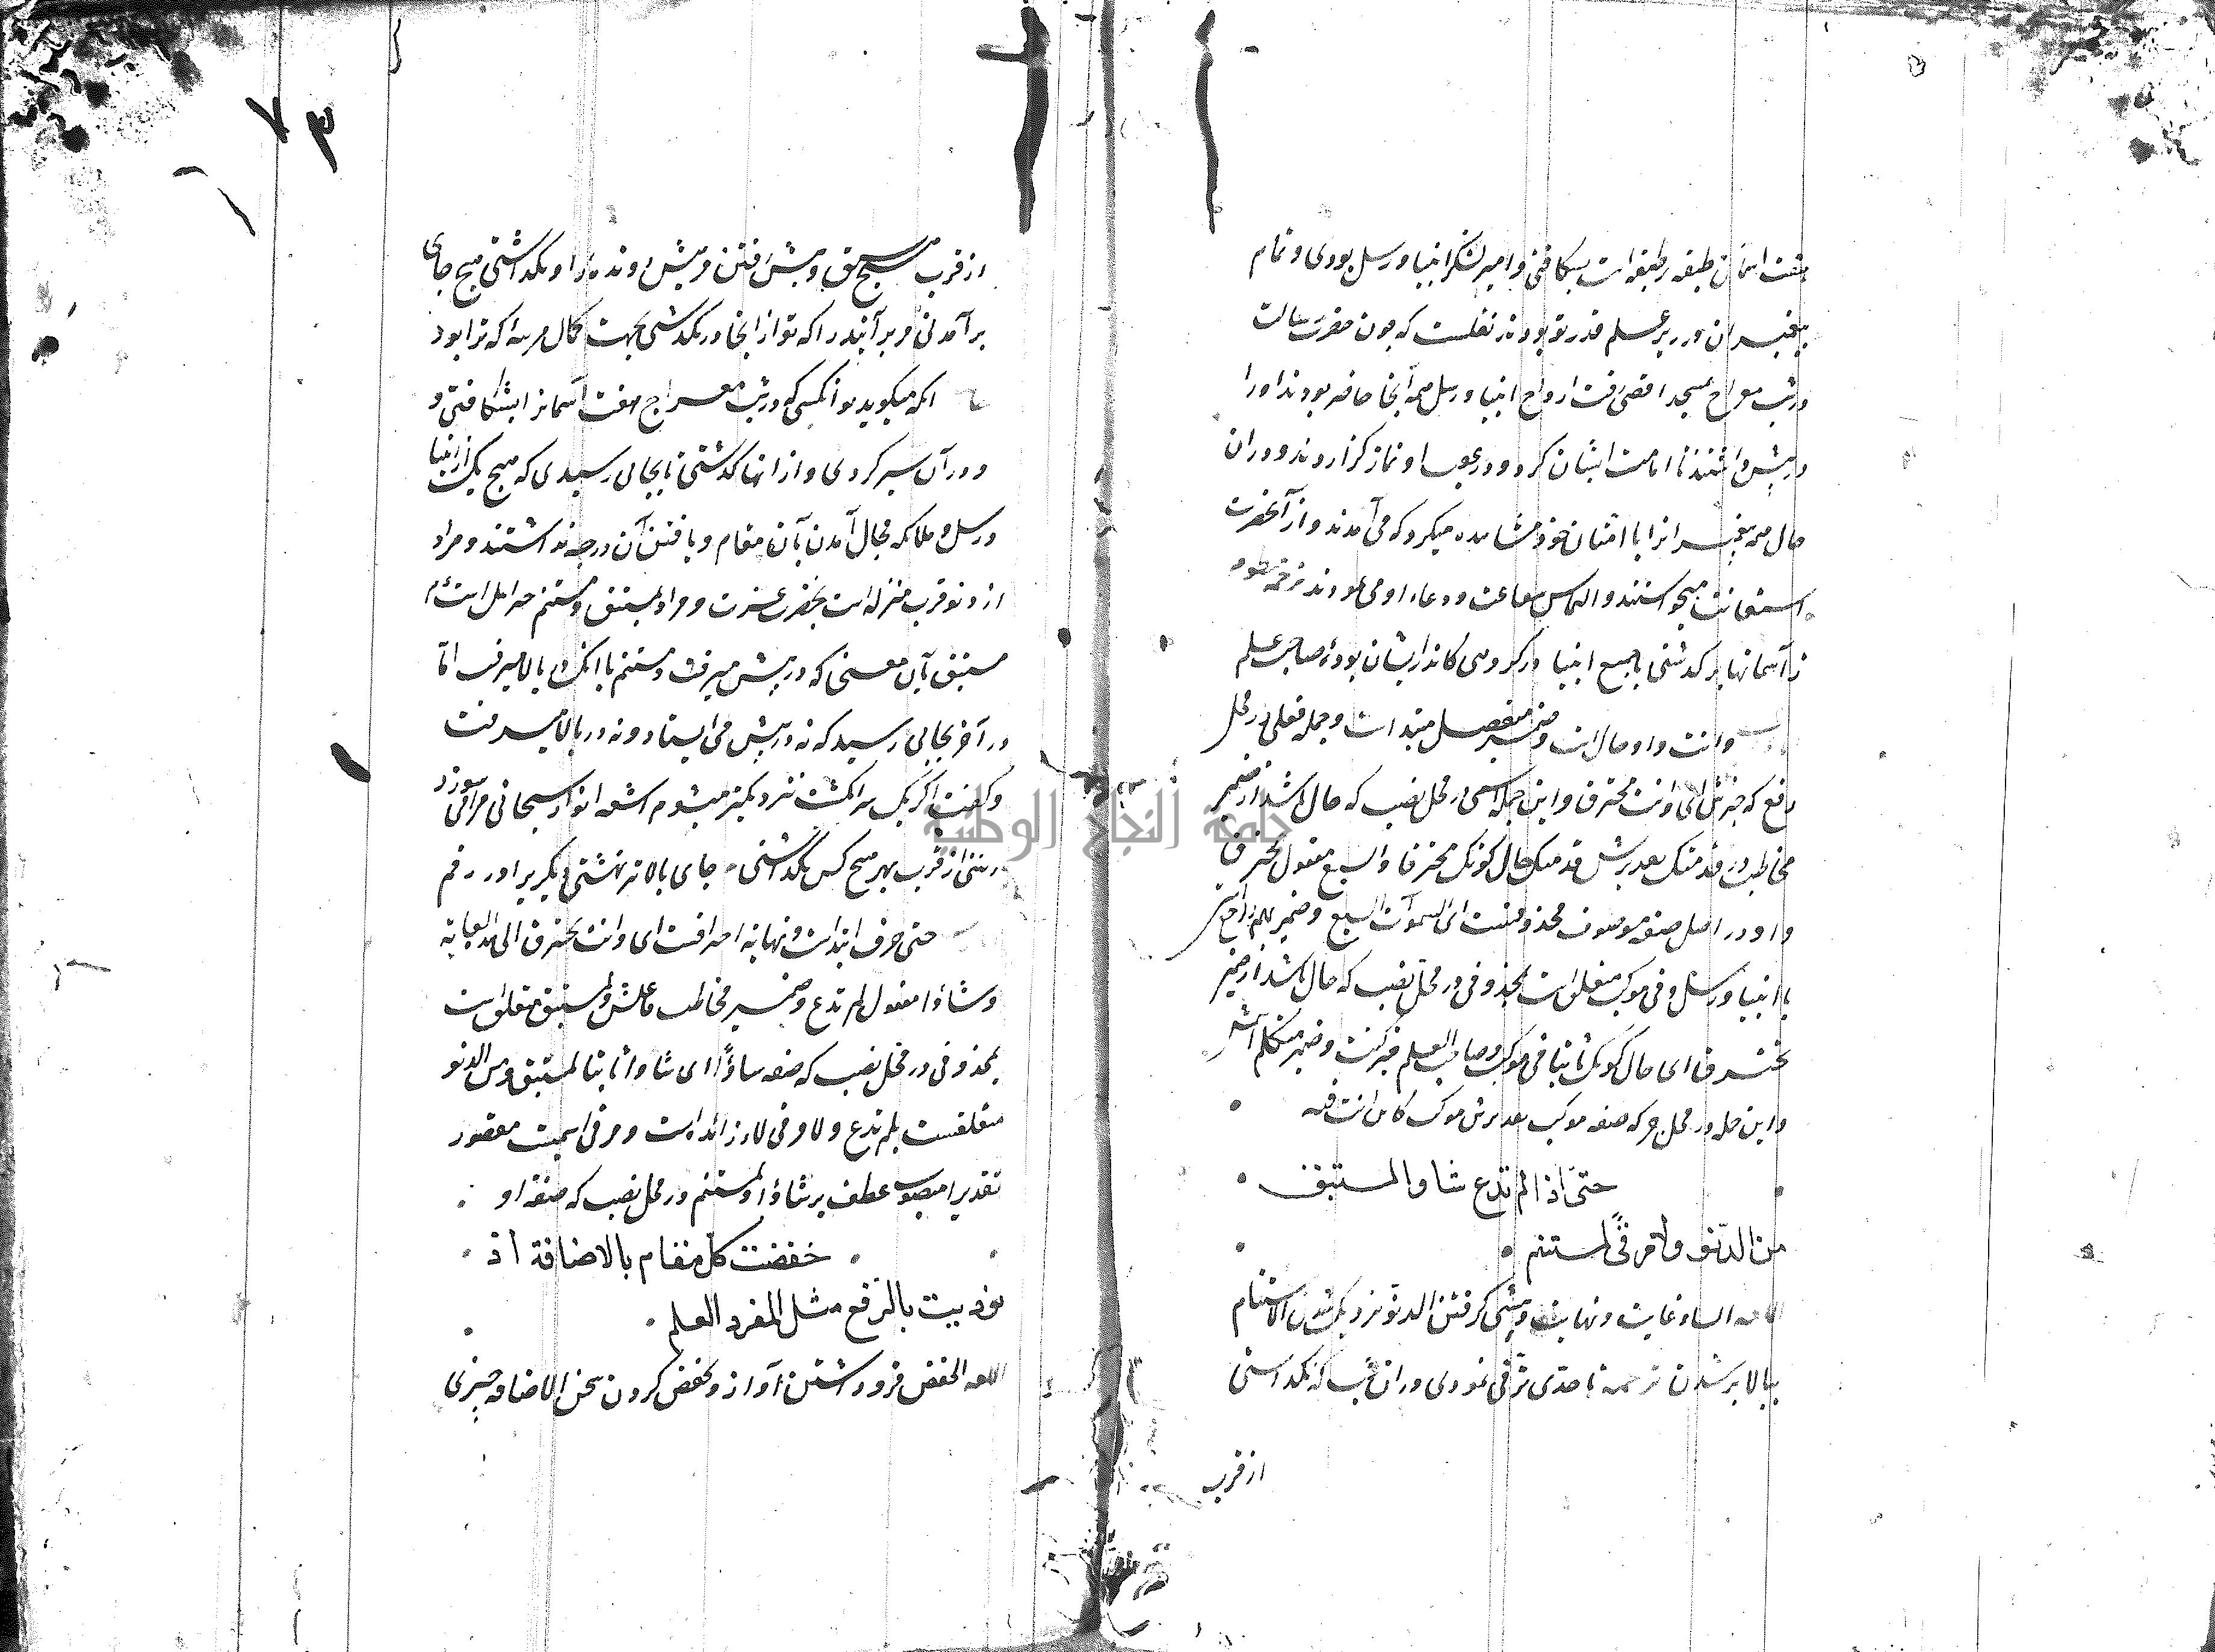 هفت اسمان طبقه بر طبقه است بشکافتی و امیر لشکر انبیا و رسل بودی و تمام
پیغمبران در زیر علم قدر تو بودند نقلست که چون حضرت رسالت
در شب معراج بمسجد اقصی رفت ارواح انبیا و رسل همه آنجا حاضر بودند اورا
در پیش داشتند تا امامت ایشان کرد و در عقب او نماز گزاردند و دران
حال همه پیغمبرانرا با امتان خود مشاهده میکرد که می آمدند و از آنحضرت
استعانت میجواستند و التماس شفاعت و دعاء او می نمودند ترجمه منظومه
ز آسمانها بر گذشتی با جمیع انبیا در گروهی کاندر ایشان بوده صاحب علم
وانت واو حال است و ضمیر منفصل مبتداست و جمله فعلی در محل
رفع که خبرش ای وانت تخترق و این جمله اسمی در محل نصب که حال باشد از ضمیر
مخاطب در قدمتک تقدیرش قدمتک حال کونک مخترقا والسبع مفعول تخترق
و او در اصل صفه موصوف محذوفست ای السموات السبع و ضمیر بهم راجع
با انبیا و رسل و فی موکب متعلق است بمحذوفی در محل نصب که حال باشد از ضمیر
تخترق ای حال کونک ثابتا فی موکب و صاحب العلم خبر کنت و ضمیر متکلم اسمش
و این جمله در محل جر که صفه موکب تقدیرش موکب کاین انت فیه
حتی اذا لم تدع شأوا لمستبق
من الدنو ولا مرقی لمستنم
اللغه الشاو غایت و نهایت و پیشی گرفتن الدنو نزدیک شدن الاستنام
ببالا بر شدن ترجمه تا حدی ترقی نمودی در ان شب که نگذاشتی
از قرب
از قرب هیچ سبق و پیش رفتن مر پیش رونده را و نگذاشتی هیچ جای
بر آمدنی مر بر آینده را که تو از انجا در نگذشتی بجهت کمال مرتبه که ترا بود
انکه میگوید تو انکسی که در شب معراج هفت آسمانرا بشکافتی و
و در آن سیر کردی و از انها گذشتی تا بجائی رسیدی که هیچ یک از انبیا
و رسل و ملائکه مجال آمدن بآن مقام و یافتن آن درجه نداشتند و مراد
از دنو قرب منزله است بحضرت عزت و مراد بمستبق و مستنم جبرائیل است
مستبق بآن معنی که در پیش میرفت و مستنم با انک ببالا میرفت اما
در آخر بجایی رسید که نه در پیش می ایستاد و نه در بالا میرفت
و گفت اگر یک سر انگشت نزدیکتر میشوم اشعه انوار سبحانی مرا می سوزد
رفتی از قرب بهر هیچ کس نگذاشتی جای بالاتر نهشتی دیگریرا در رقم
حتی حرف ابتداست و نهایه اختراقست ای وانت تخترق الی هذ الغایة
و شاوا مفعول لم تدع و ضمیر مخاطب فاعلش و لمستبق متعلق است
بمحذوفی در محل نصب که صفه شاوا ای شاوا ثابتا لمستبق و من الدنو
متعلقست بلم تدع و لا و فی لا زائد است و مرقی اسمیست مقصور
تقدیرا منصوب عطف بر شاوا و لمستنم در محل نصب که صفه او
خفضت کل مقام بالاضافة اذ
نودیت بالرفع مثل المفرد العلم
اللغه الخفض فرو داشتن آواز و خفض کردن سخن الاضافه چیزی